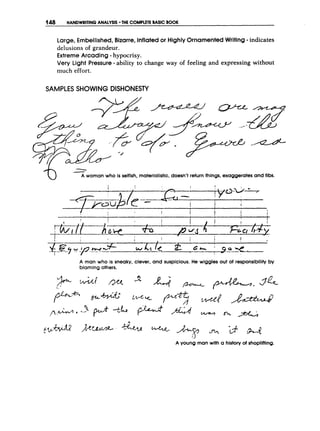 148 HANDWRITING ANALYSIS - THE COMPLETE BASIC BOOK
Large, Embellished, Bizarre, Inflated or Highly Ornamented Writing - indicates
delusions of grandeur.
Extreme Arcading - hypocrisy.
Very Light Pressure - ability to change way of feeling and expressing without
much effort.
SAMPLES SHOWING DISHONESTY
The roses are
You always know the
to do.
also
A woman who is selfish, materialistic, doesn't return things, exaggerates and fibs.
you
Trouble -
Will have to push
Equipment while I am gone
A man who is sneaky, clever, and suspicious. He wiggles out of responsibility by
blaming others.
you will see I had some problems. The
plants outside were pretty well battered
put the plant that was on
outside because they were
A young man with a history of shoplifting.